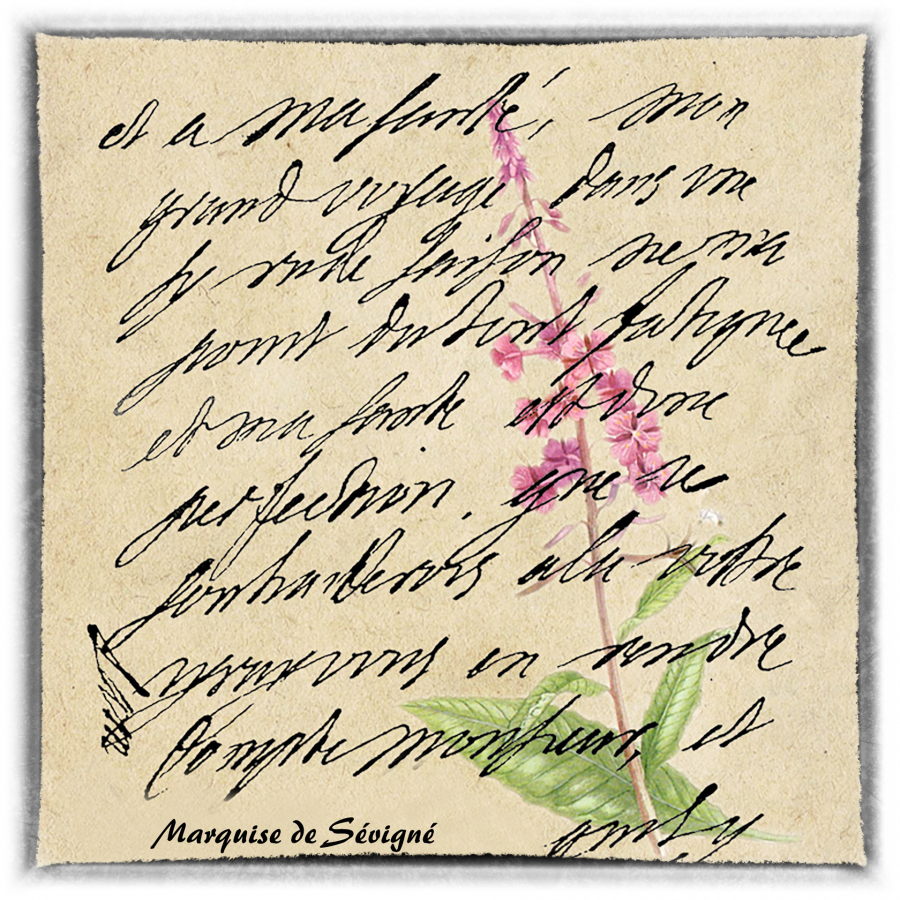 et a ma santé, mon
grand voyage dans une
sy rude saison ne ma
point du tout fatiguée
et ma santé est dune
perfection, que je
souhaiterois a la vostre
en rendre
Compte monsieur, et
Marquise de Sévigné